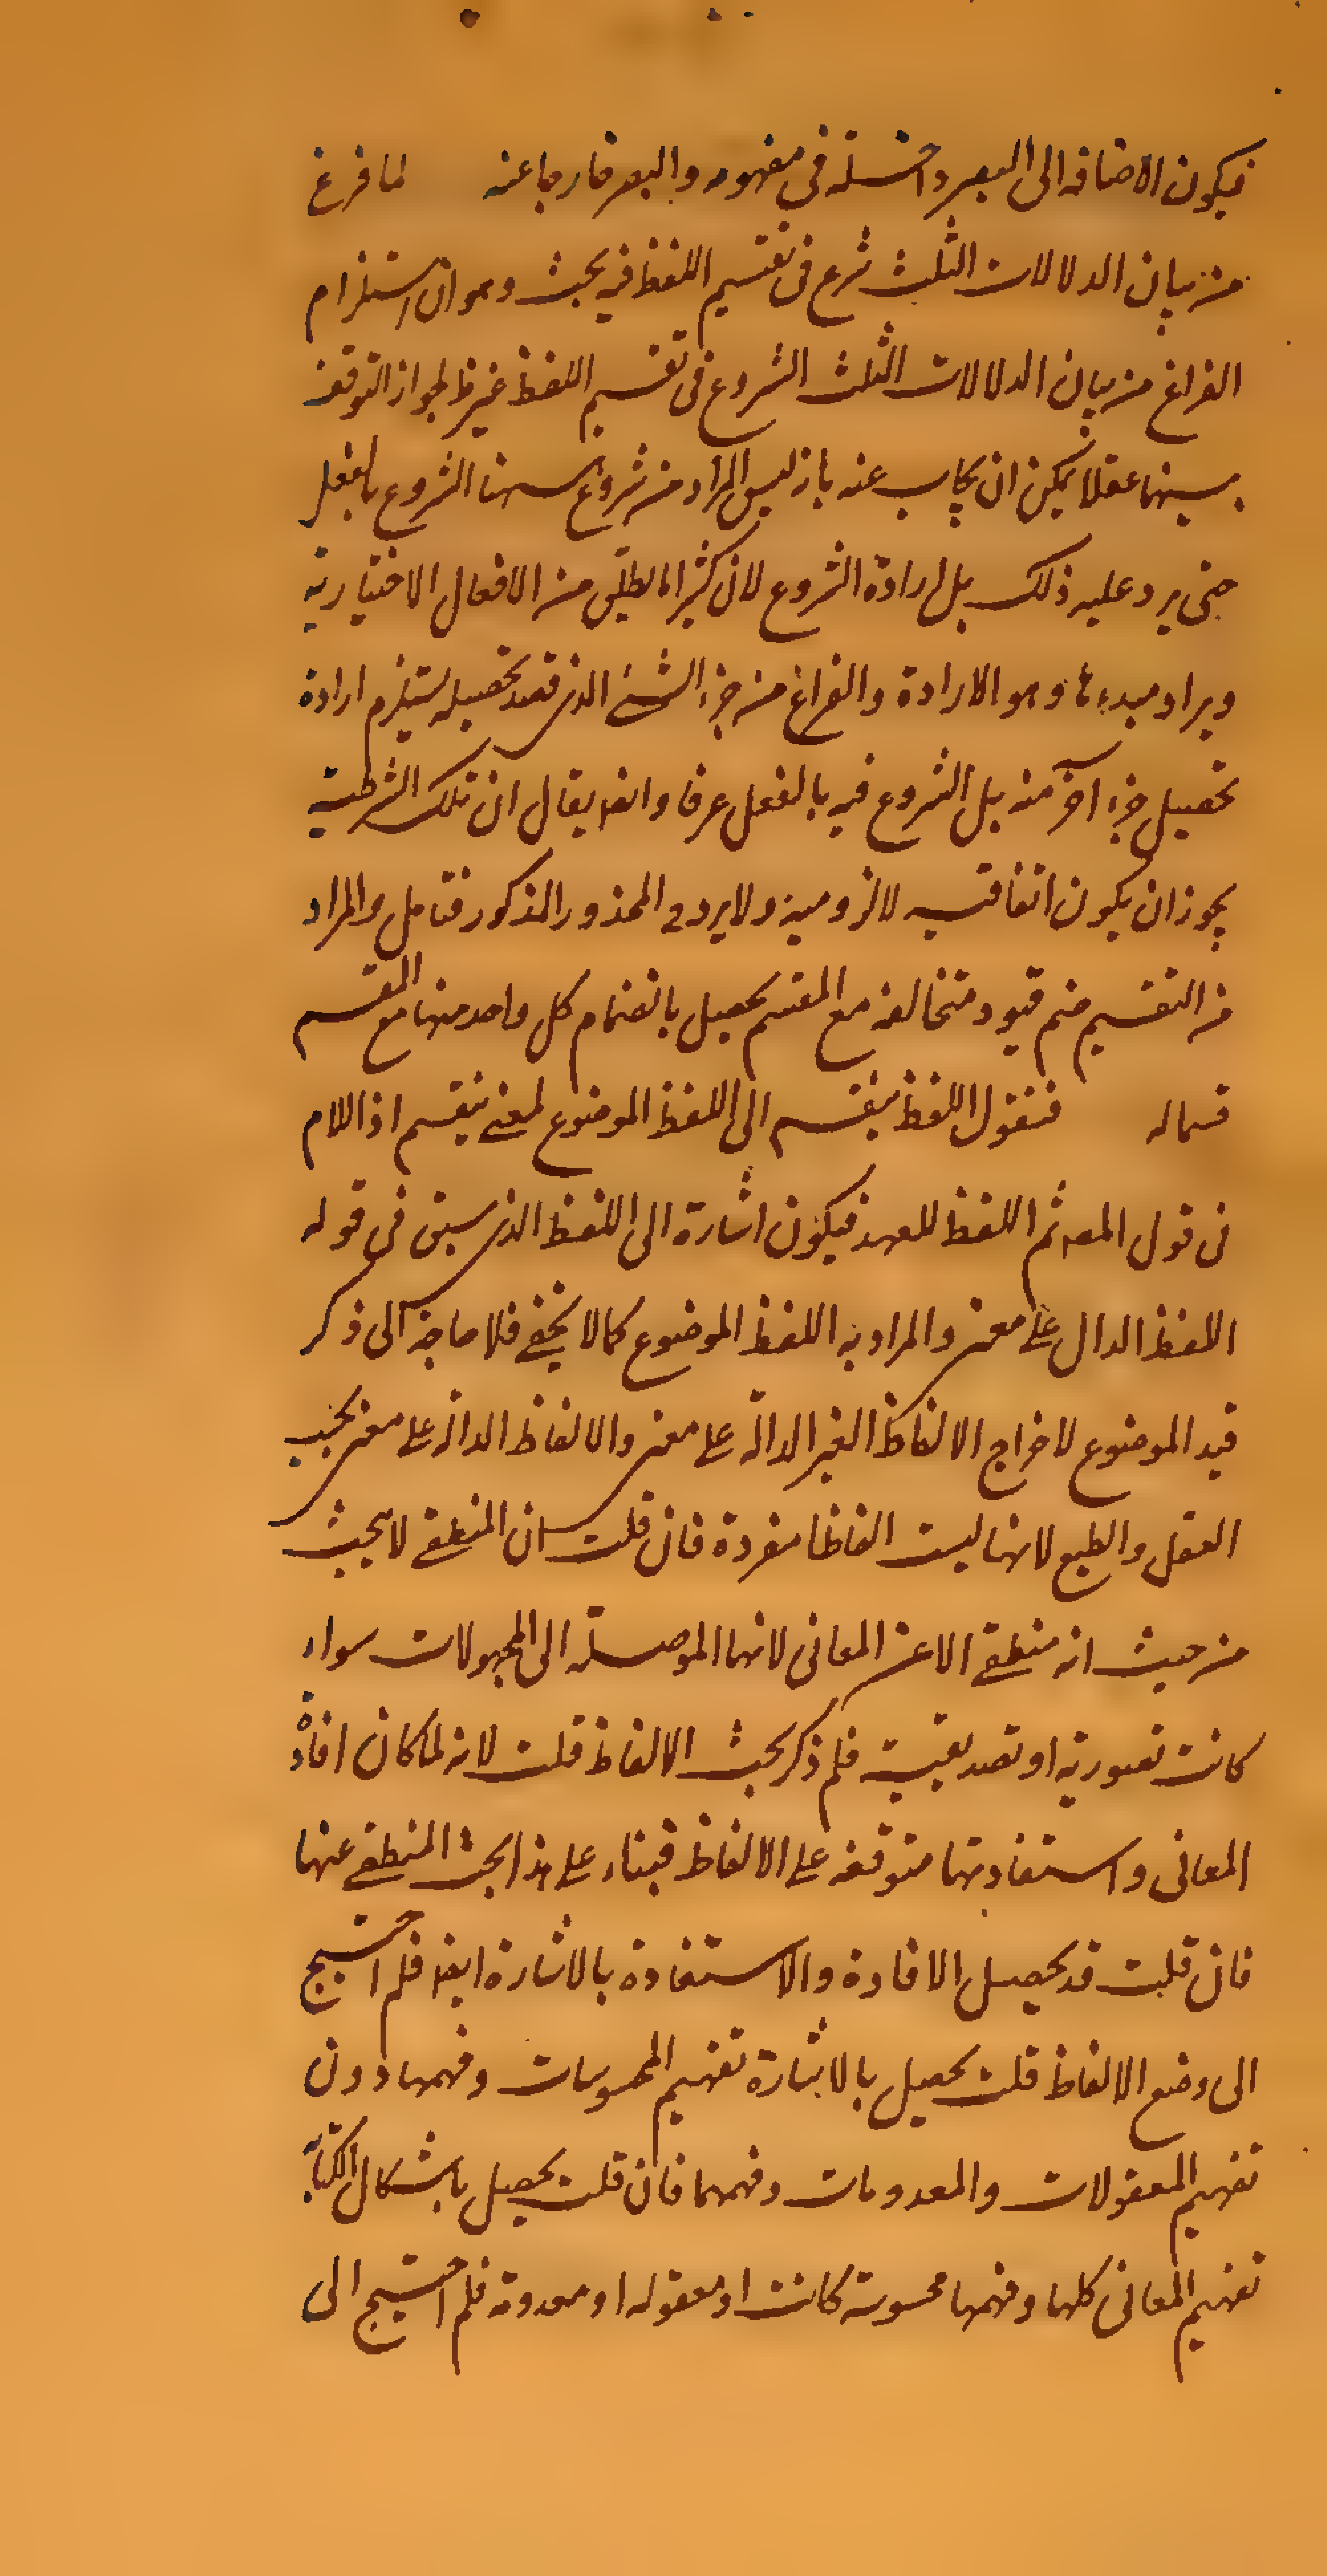 فيكون الاضافه الى البصر داخلة فى مفهومه والبصر خارجا عنه لما فرغ
من بيان الدلالات الثلث شرع فى تقسيم اللفظ فيه بحث وهو ان استلزام
الفراغ من بيان الدلالات الثلث الشروع فى تقسيم اللفظ غير ظ لجواز التوقف
بينهما عقلا يمكن ان يجاب عنه بان ليس المراد من شروع ههنا الشروع بالفعل
حتى يرد عليه ذلك بل ارادة الشروع لان كثيرا ما يطلق من الافعال الاختيارية
ويراد مبدءها وهو الارادة والفراغ من جزء الشئ الذى قصد تحصيله يستلزم ارادة
تحصيل جزء آخر منه بل الشروع فيه بالفعل عرفا وايضا يقال ان تلك الشرطية
يجوز ان يكون اتفاقيه لا لزومية ولا يرد ح المحذور المذكور فتامل والمراد
من التقسيم ضم قيود متخالفة مع المقسم يحصل بانضمام كل واحد منها مع المقسم
قسما له فنقول اللفظ ينقسم الى اللفظ الموضوع لمعنى ينقسم اذ اللام
فى قول المصـ ثم اللفظ للعهد فيكون اشارة الى اللفظ الذى سبق فى قوله
اللفظ الدال على معنى والمراد به اللفظ الموضوع كما لا يخفى فلا حاجة الى ذكر
قيد الموضوع لاخراج الالفاظ الغير الدالة على معنى والالفاظ الدالة على معنى بحسب
العقل والطبع لانها ليست الفاظا مفردة فان قلت ان المنطقى لا يبحث
من حيث انه منطقى الا عن المعانى لانها الموصلة الى المجهولات سواء
كانت تصورية او تصديقية فلم ذكر بحث الالفاظ قلت لانه لما كان افادة
المعانى واستفادتها متوقفة على الالفاظ فبناء على هذا بحث المنطقى عنها
فان قلت قد يحصل الافادة والاستفادة بالاشارة ايضا فلم احتيج
الى وضع الالفاظ قلت يحصل بالاشارة تفهيم المحسوسات وفهمها دون
تفهيم المعقولات والمعدومات وفهمها فان قلت يحصل باشكال الكتابة
تفهيم المعانى كلها وفهمها محسوسة كانت او معقوله او معدومة فلم احتيج الى